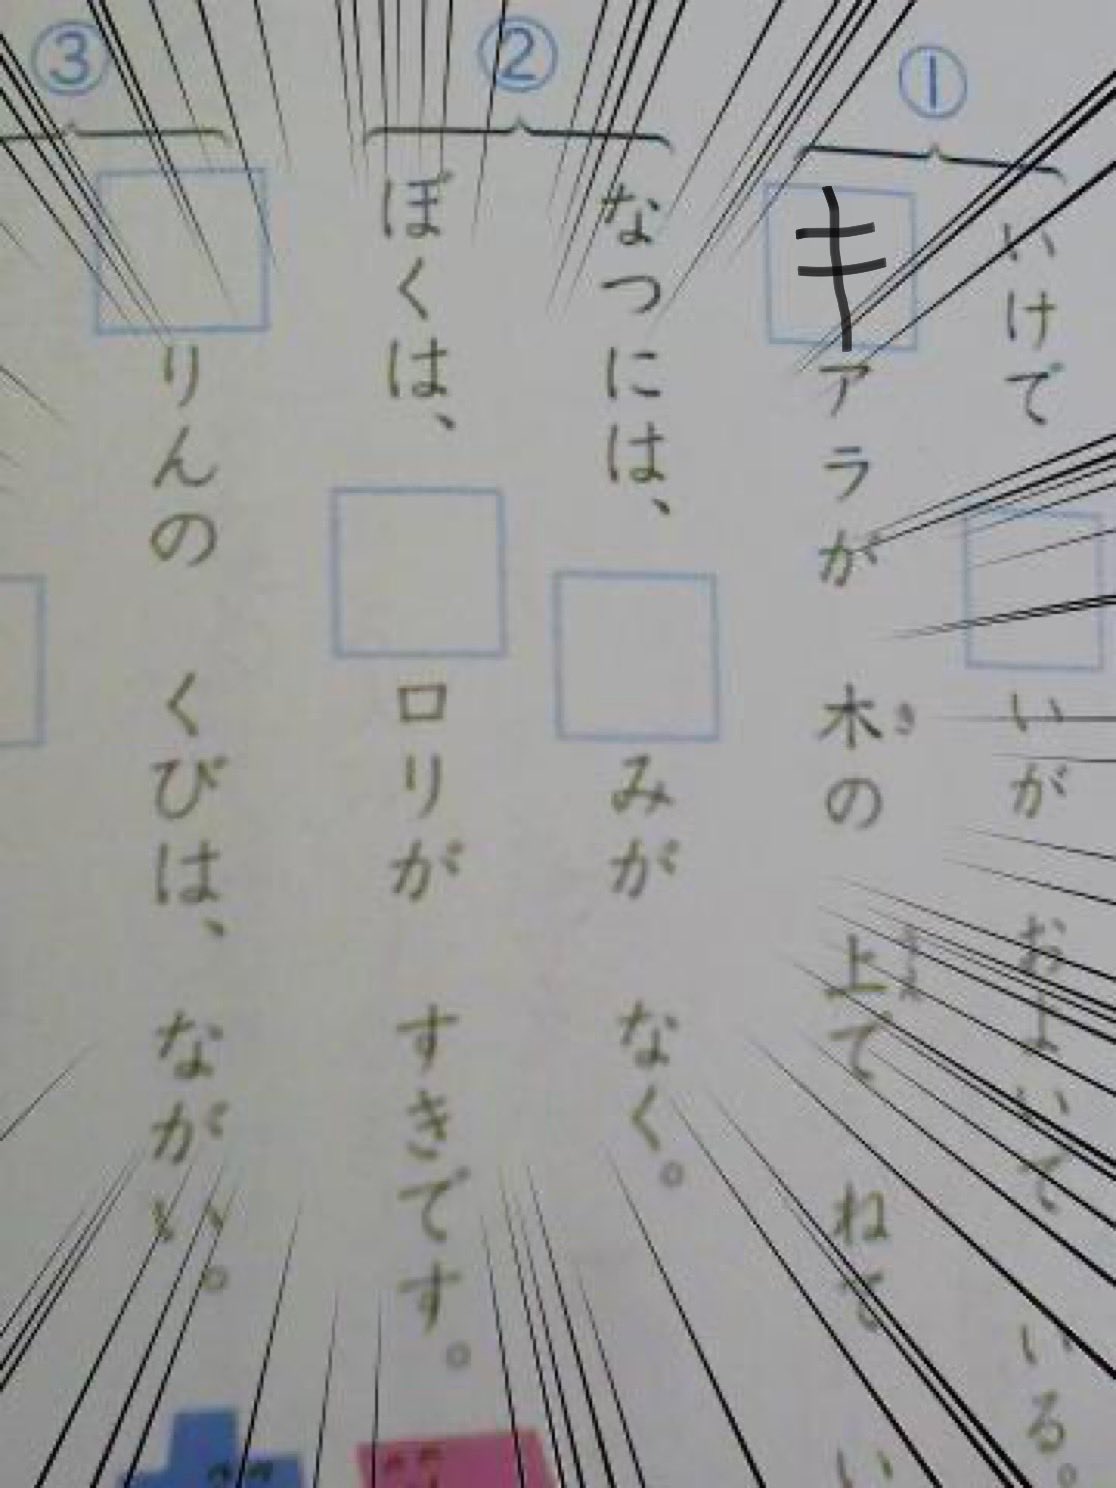 ①
いけで □いが およいて いる。
キアラが 木の 上で ねて い
②
なつには、□みが なく。
ぼくは、□ロリが すきです。
③
□りんの くびは、ながい。